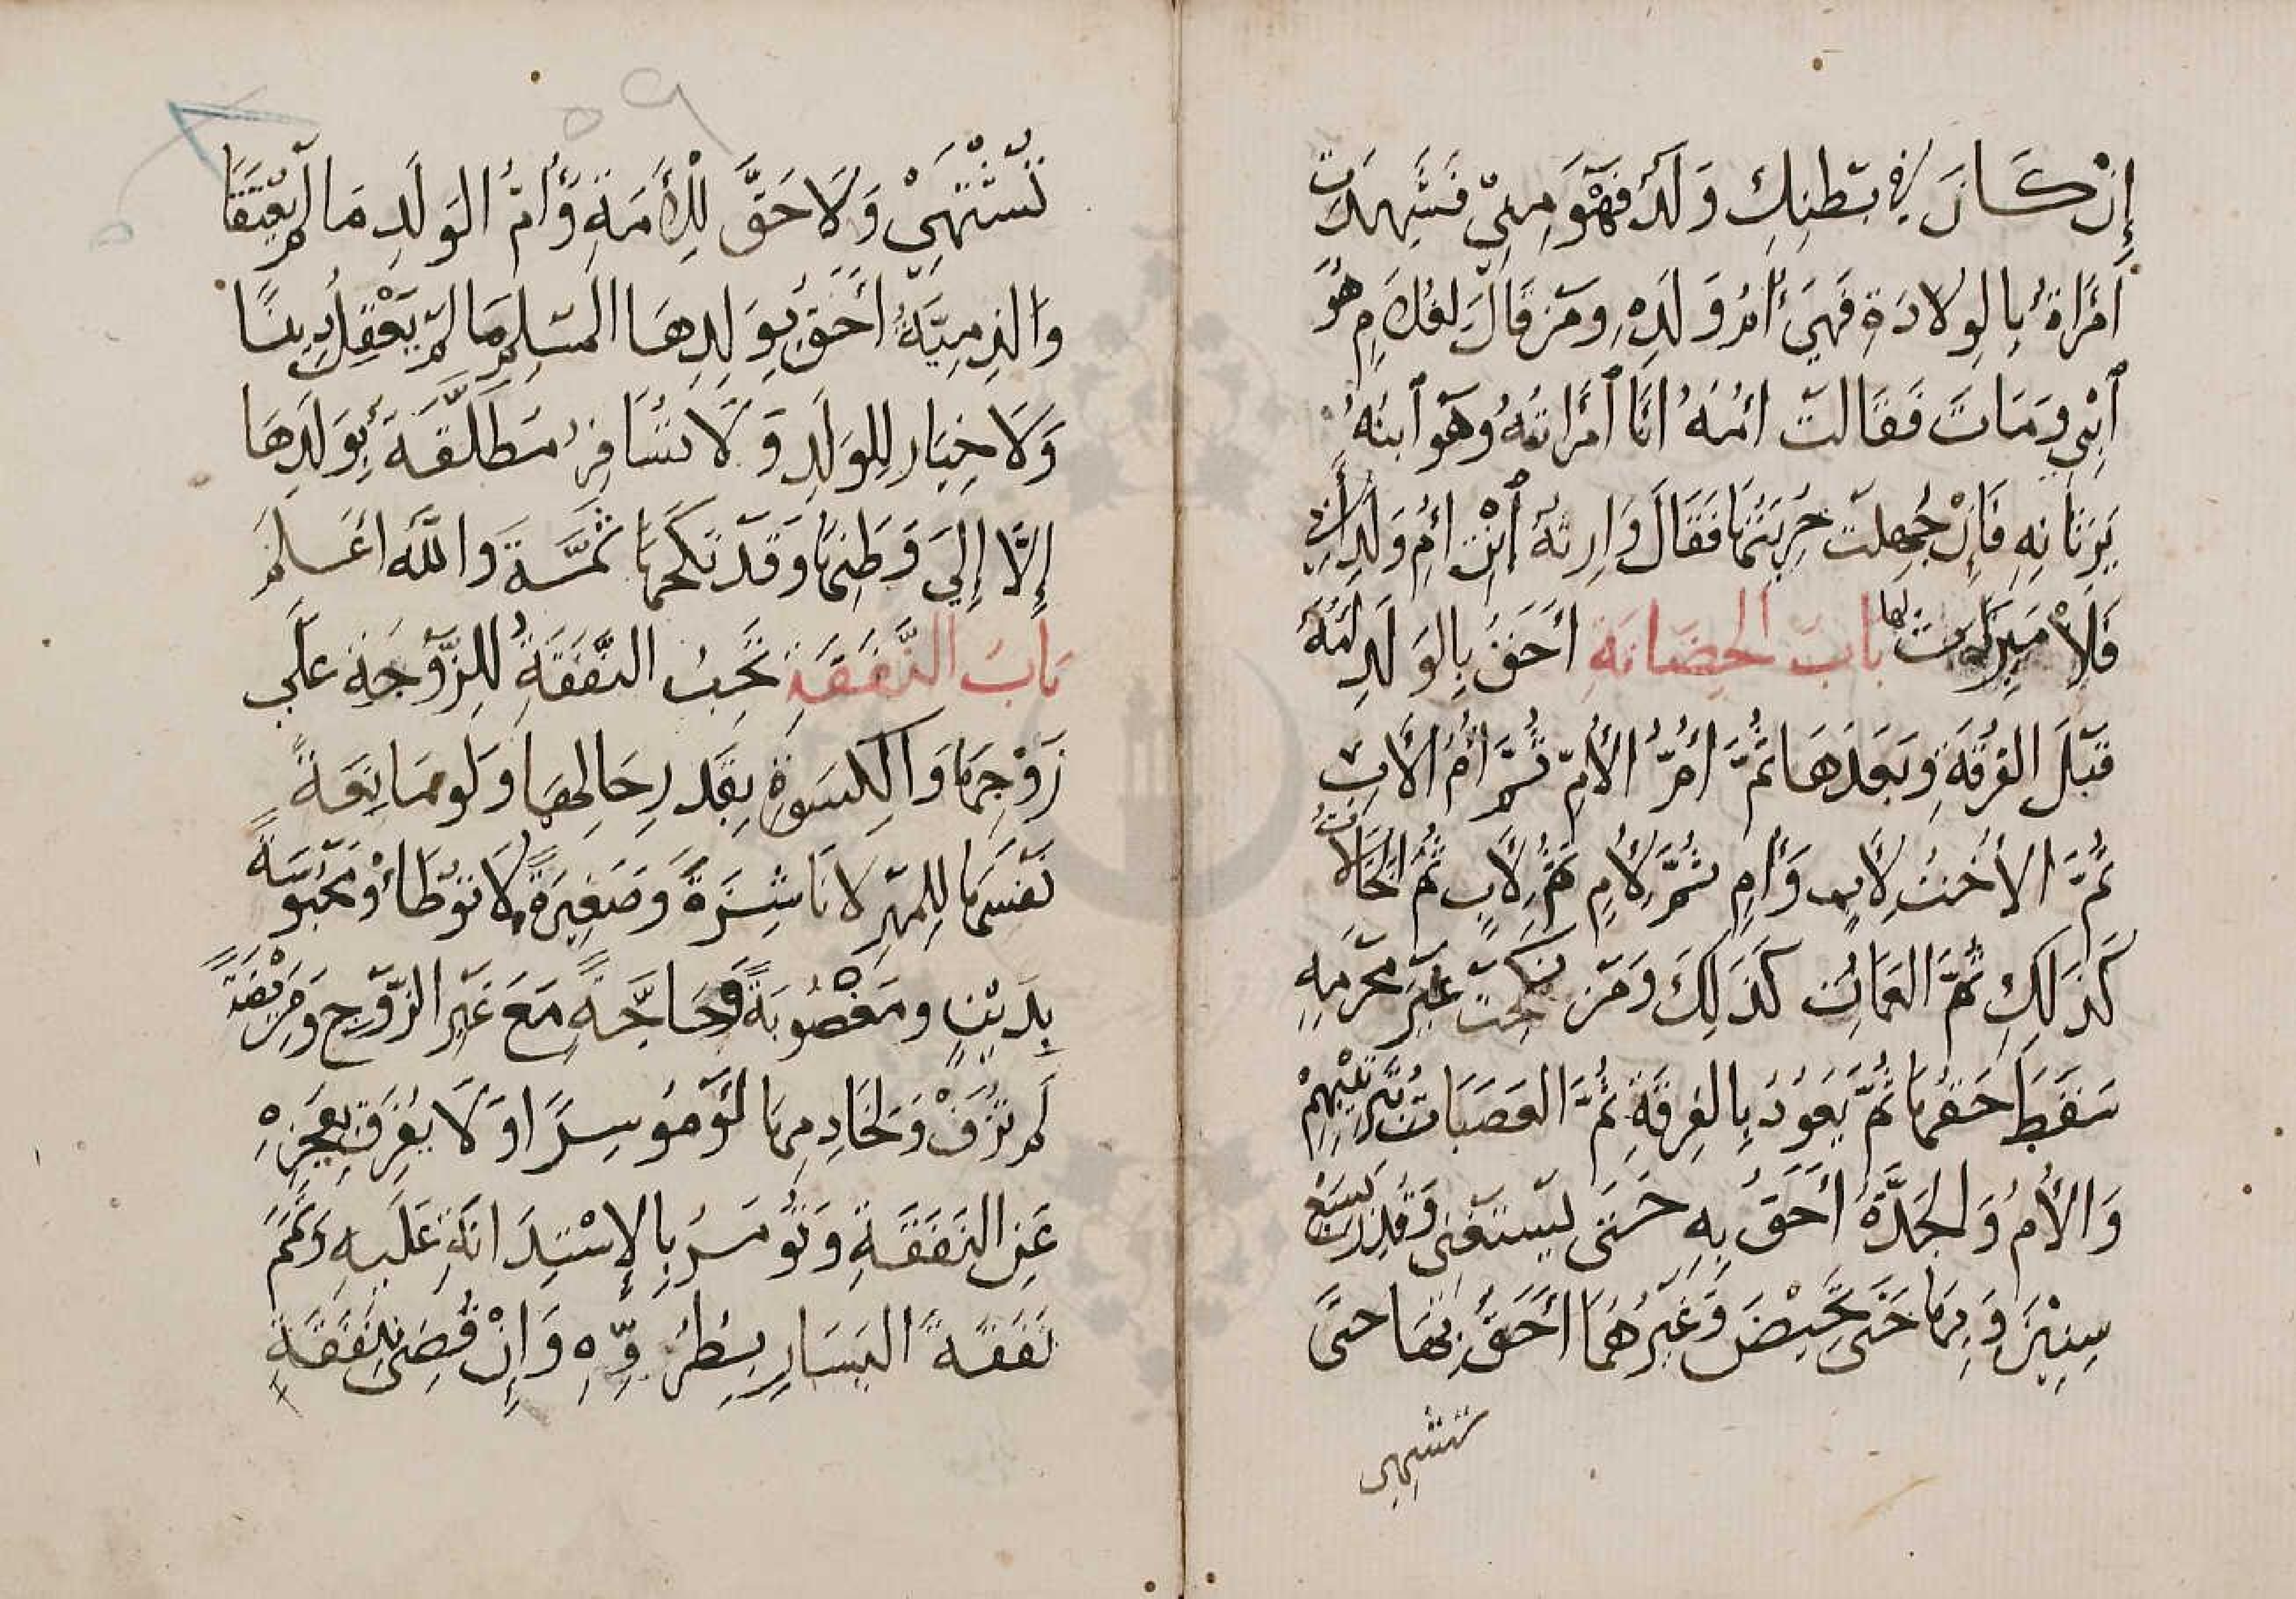 إن كان في بطنك ولد فهو مني فشهدت
امرأة بالولادة فهي أم ولده ومن قال لغلام هو
ابني ومات فقالت أمه أنا امرأته وهو ابنه
يرثانه فإن جهلت حريتها فقال وارثه أنت أم ولد أبي
فلا ميراث لها باب الحضانة أحق بالولد أمه
قبل الفرقة وبعدها ثم أم الأم ثم أم الأب
ثم الأخت لأب وأم ثم لأم ثم لأب ثم الخالات
كذلك ثم العمات كذلك ومن نكحت غير محرمه
سقط حقها ثم يعود بالفرقة ثم العصبات بترتيبهم
والأم والجدة أحق به حتى يستغنى وقدر بسبع
سنين وبها حتى تحيض وغيرهما أحق بها حتى
تشتهى
٥٩
تشتهى ولا حق للأمة وأم الولد ما لم يعتقا
والذمية أحق بولدها المسلم ما لم يعقل دينا
ولا خيار للولد ولا تسافر مطلقة بولدها
إلا إلى وطنها وقد نكحها ثمة والله أعلم
باب النفقة تجب النفقة للزوجة على
زوجها والكسوة بقدر حالهما ولو مانعة
نفسها للمهر لا ناشزة وصغيرة لا توطأ ومحبوسة
بدين ومغصوبة وحاجة مع غير الزوج ومريضة
لم تزف ولخادمها لو موسرا ولا يفرق بعجزه
عن النفقة وتؤمر بالإستدانة عليه وتمم
نفقة اليسار بطروه وإن قضى بنفقة